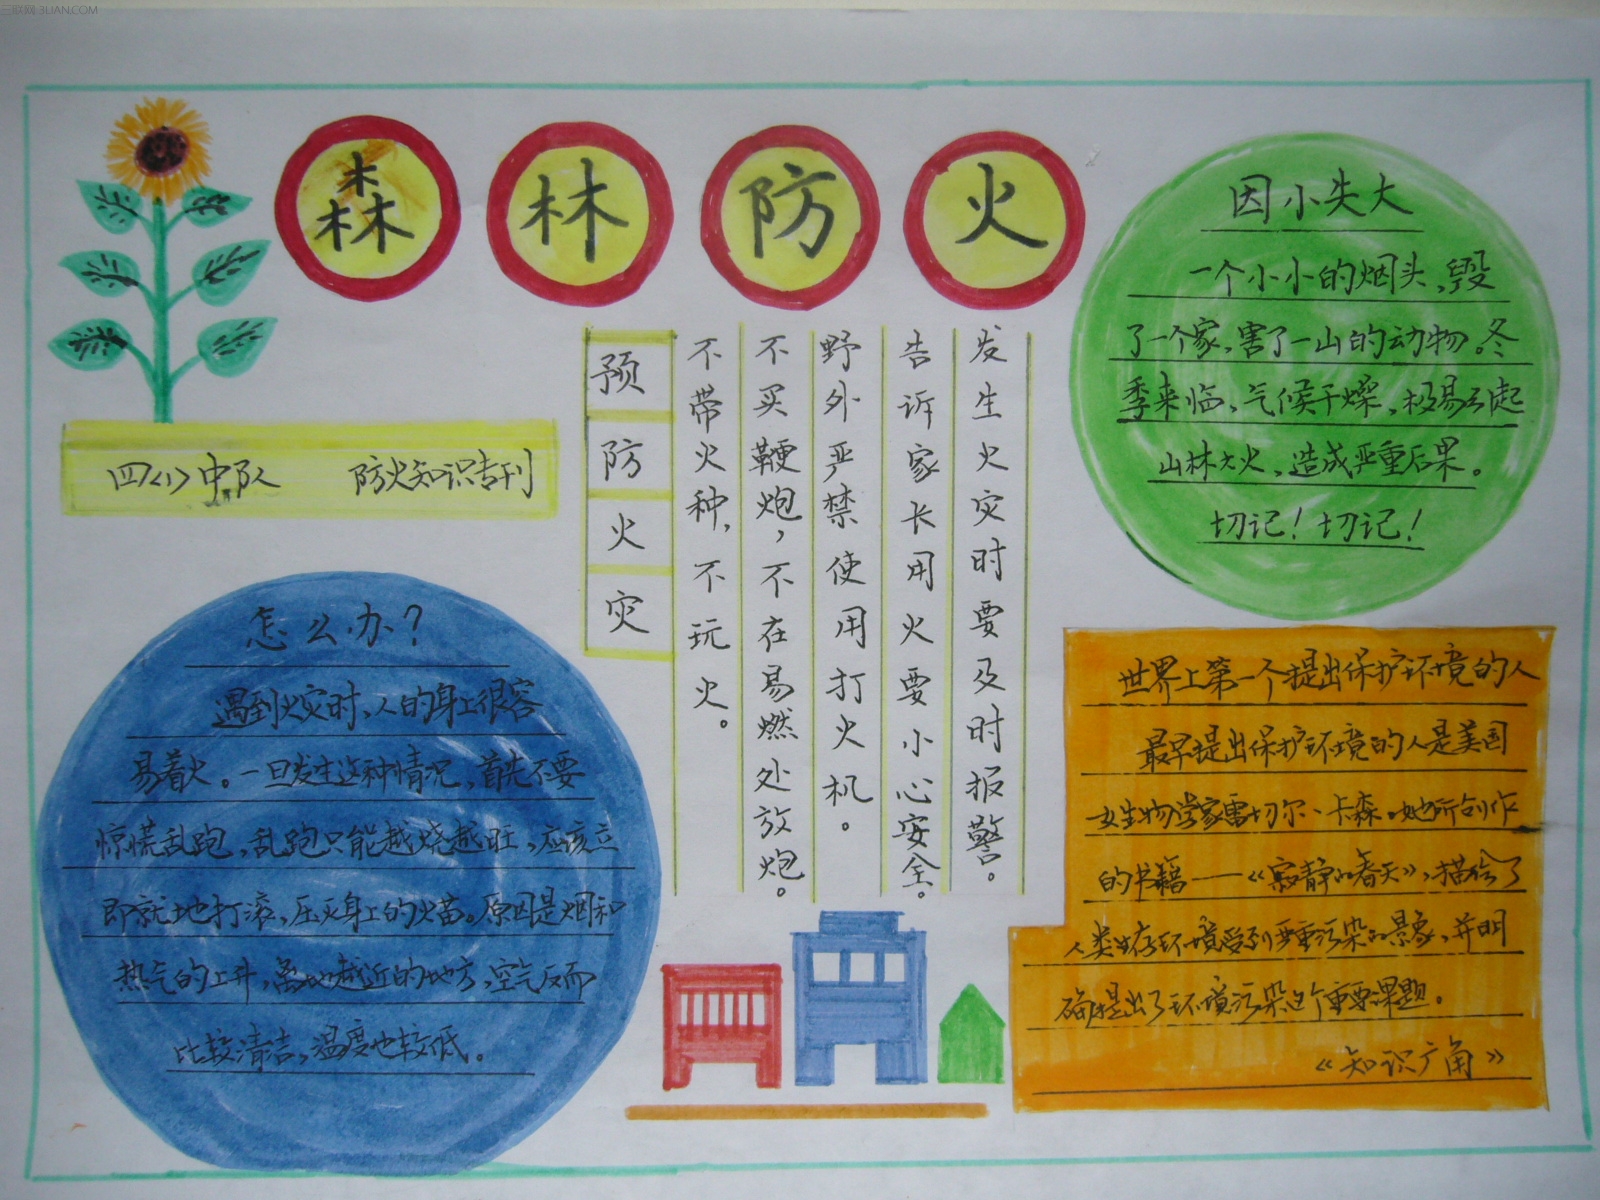 三联网 3LIAN.COM
森林防火
四(1)中队 防火知识专刊
因小失大
一个小小的烟头,毁
了一个家,害了一山的动物。冬
季来临,气候干燥,极易引起
山林大火,造成严重后果。
切记!切记!
预防火灾
不带火种,不玩火。
不买鞭炮,不在易燃处放炮。
野外严禁使用打火机。
告诉家长用火要小心安全。
发生火灾时要及时报警。
怎么办?
遇到火灾时,人的身上很容
易着火。一旦发生这种情况,首先不要
惊慌乱跑,乱跑只能越烧越旺,应该立
即就地打滚,压灭身上的火苗。原因是烟和
热气的上升,离地越近的地方,空气反而
比较清洁,温度也较低。
世界上第一个提出保护环境的人
最早提出保护环境的人是美国
女生物学家雷切尔、卡森。她所创作
的书籍——《寂静的春天》,描绘了
人类生存环境受到严重污染的景象,并明
确提出了环境污染这个重要课题。
《知识广角》